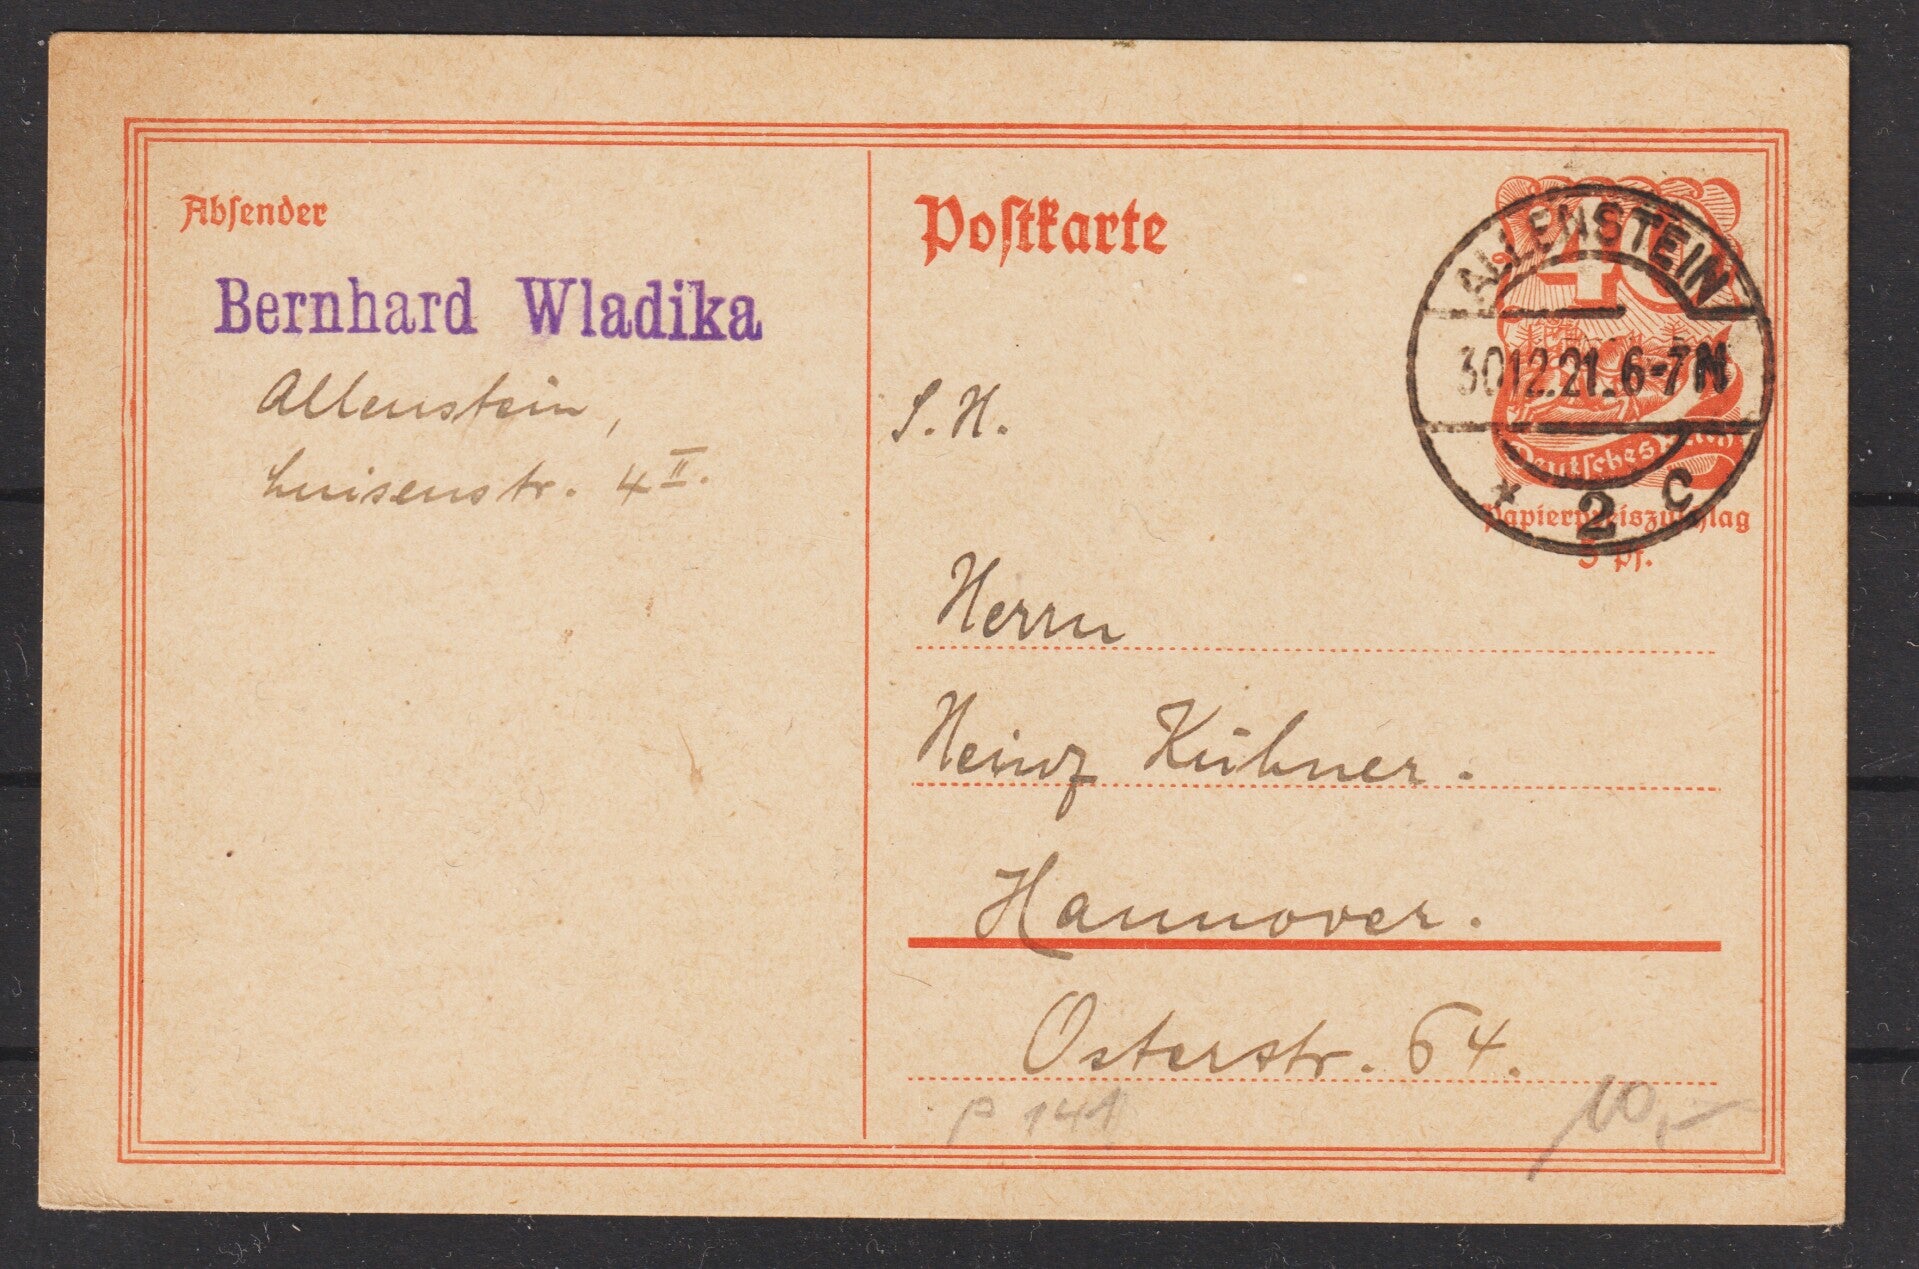 Absender
Bernhard Wladika
Allenstein,
Luisenstr. 4 II.
Postkarte
ALLENSTEIN
30.12.21. 6-7 N
* 2 c
40
Deutsches Reich
Papierpreiszuschlag
5 Pf.
S. H.
Herrn
Heinz Kühner.
Hannover.
Osterstr. 64.
P 141
10,-